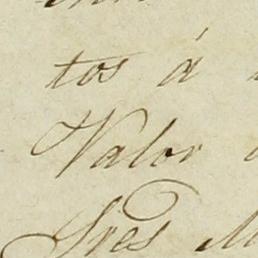 tos á
Valor
Sres M